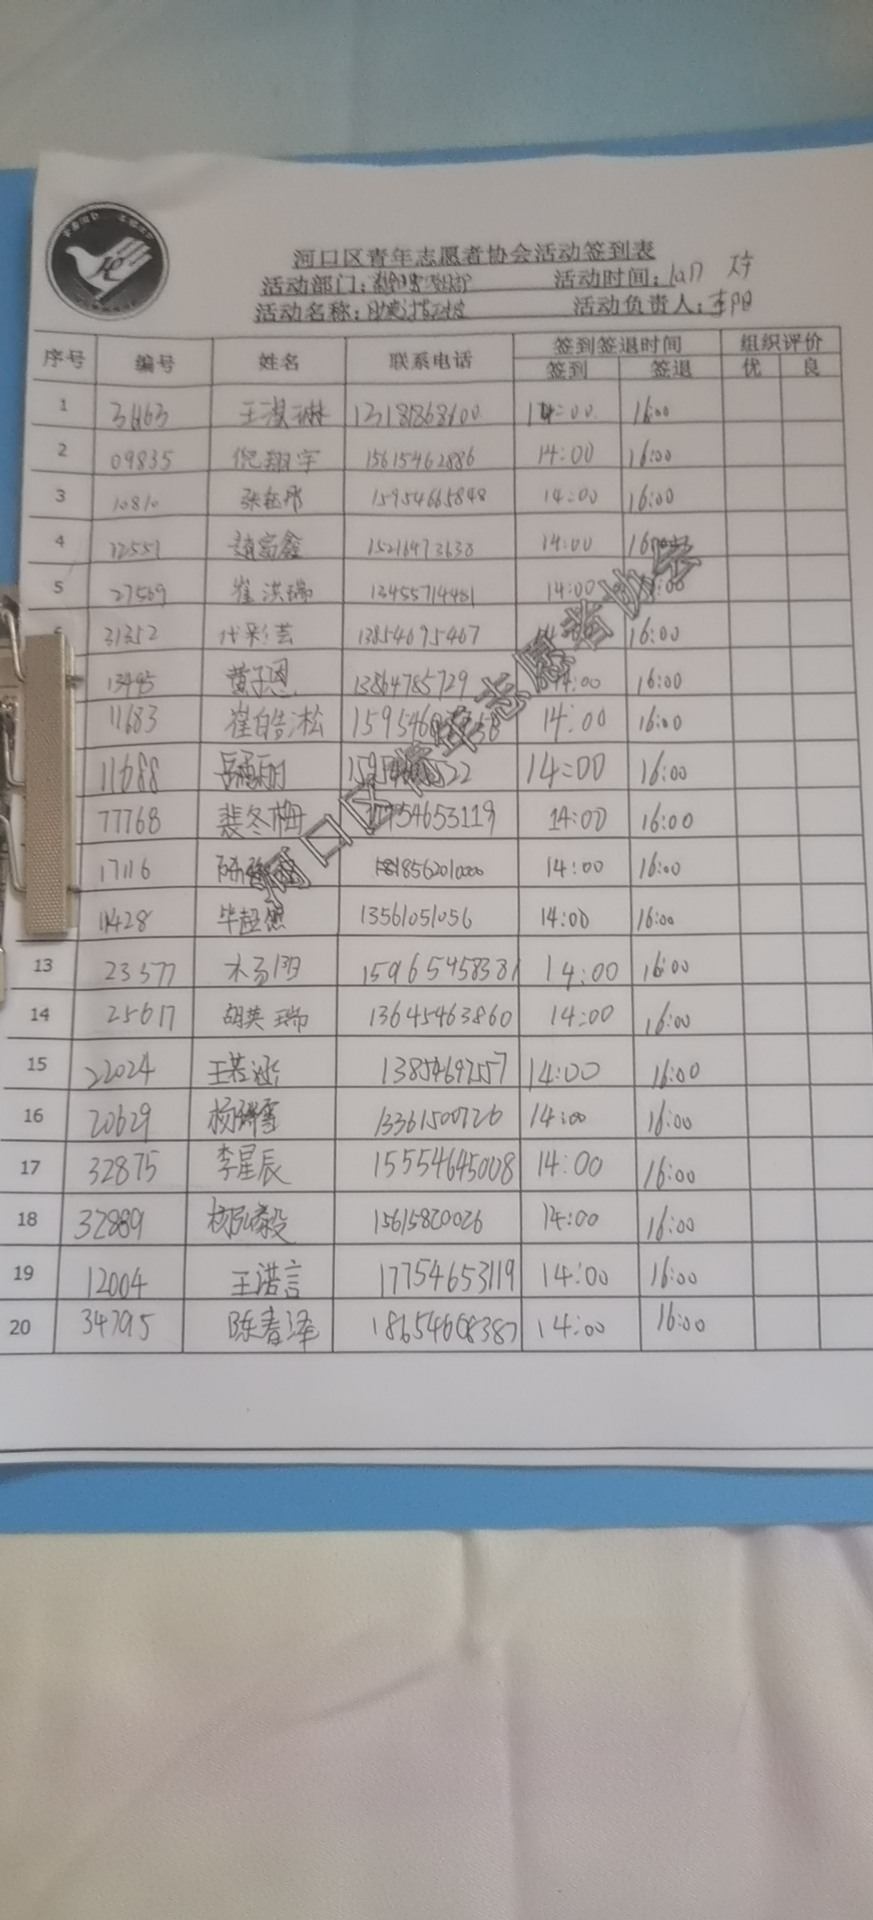 河口区青年志愿者协会活动签到表
活动部门： 活动时间：
活动名称： 活动负责人：李阳
序号 编号 姓名 联系电话 签到签退时间 组织评价
签到 签退 优 良
1 王淇琳 13181868100 14:00 16:00
2 09835 倪翔宇 15615462886 14:00 16:00
3 10810 15954665848 14:00 16:00
4 12551 赵富鑫 15216473638 14:00
5 27569 崔洪瑞 13455714481 14:00
31352 代彩芸 13854695467 16:00
13495 黄子恩 13864785729 14:00 16:00
11683 崔皓淞 14:00 16:00
11688 14:00 16:00
77768 裴冬梅 17754653119 14:00 16:00
17116 14:00 16:00
11428 毕超然 13561051056 14:00 16:00
13 23577 15965458381 14:00 16:00
14 25617 胡英瑞 13645463860 14:00 16:00
15 22024 王若涵 14:00 16:00
16 20629 13361500726 14:00 16:00
17 32875 李星辰 15554645008 14:00 16:00
18 32889 15615820026 14:00 16:00
19 12004 王诺言 17754653119 14:00 16:00
20 34795 陈春泽 18654608387 14:00 16:00
河口区青年志愿者协会